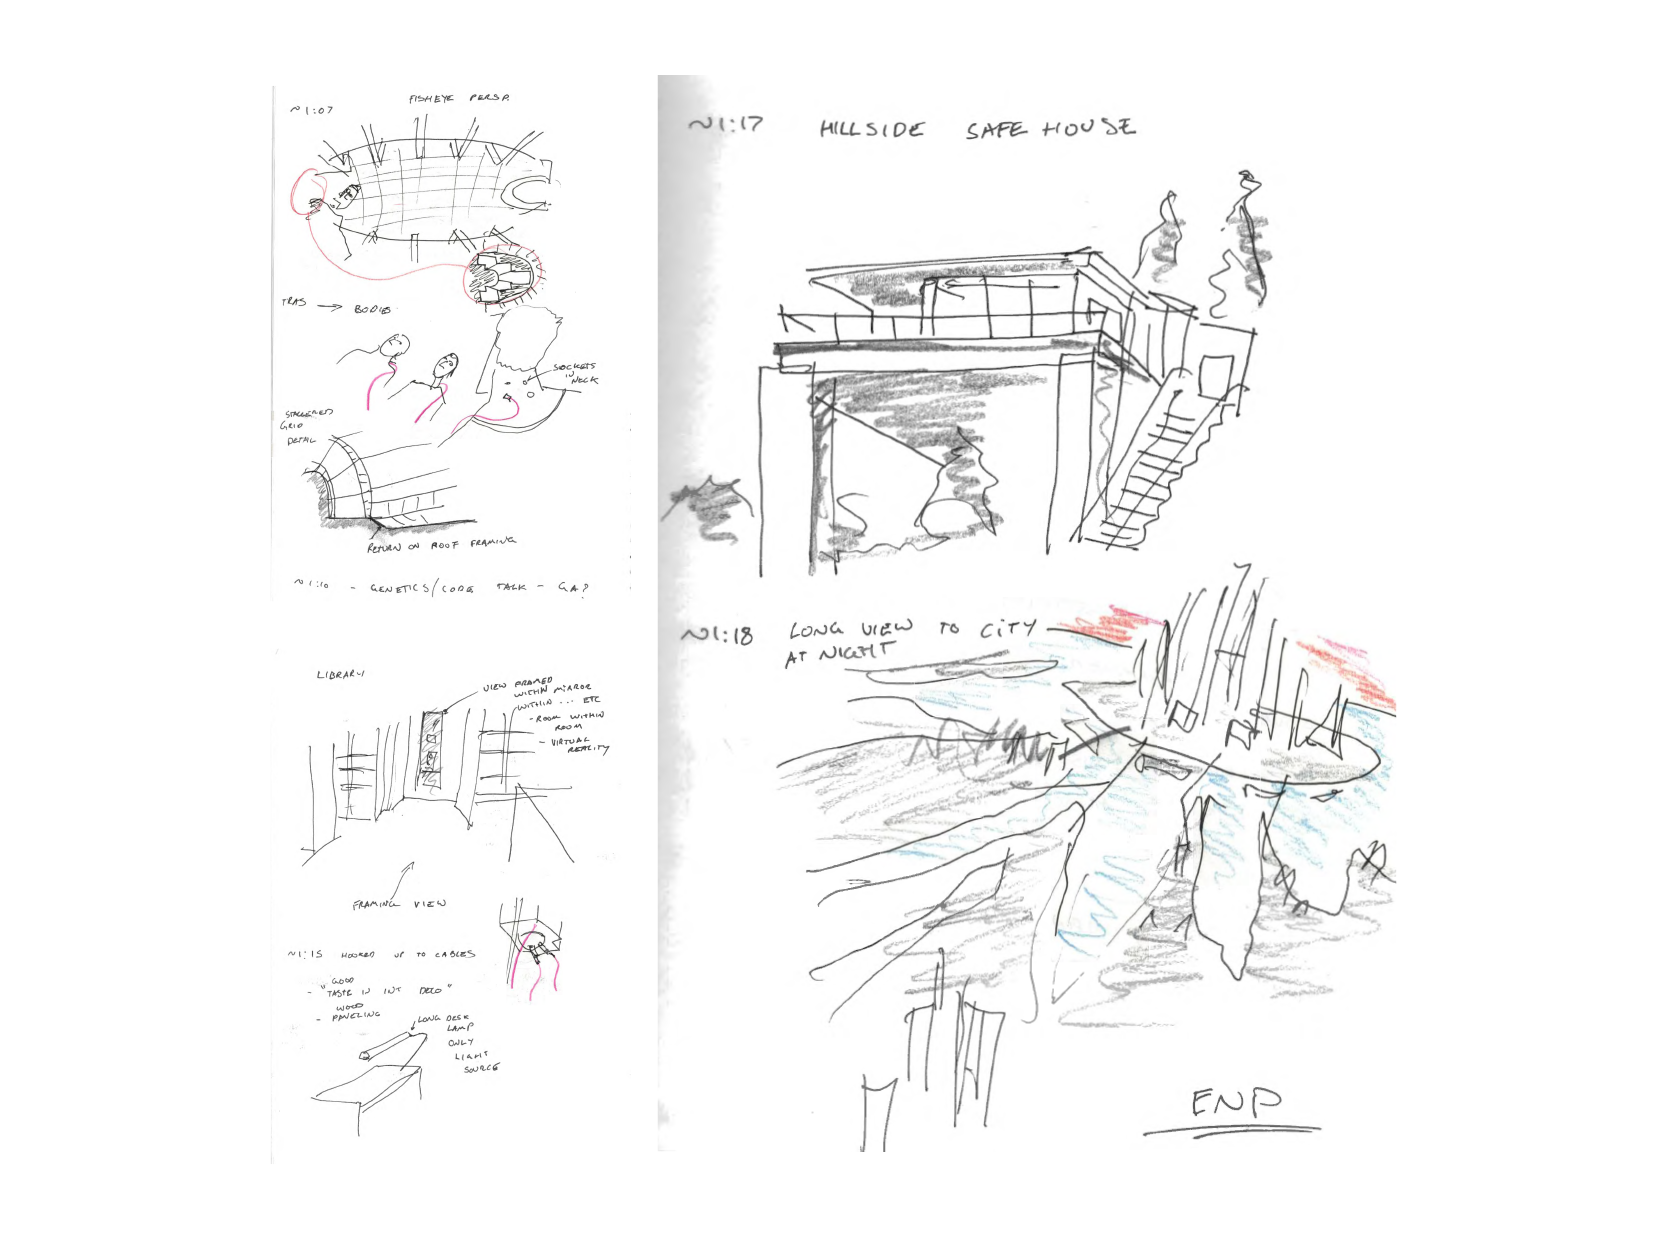 ~1:07
FISHEYE PERSP.
TRAS → BODIES
SOCKETS
IN
NECK
STAGGERED
GRID
DETAIL
RETURN ON ROOF FRAMING
~1:10 - GENETICS/CODE TALK - GA?
LIBRARY
VIEW FRAMED
WITHIN MIRROR
WITHIN ... ETC
- ROOM WITHIN
ROOM
- VIRTUAL
REALITY
FRAMING VIEW
~1:15 HOOKED UP TO CABLES
- "GOOD
TASTE IN INT DECO"
WOOD
- PANELING
LONG DESK
LAMP
ONLY
LIGHT
SOURCE
~1:17 HILLSIDE SAFE HOUSE
~1:18 LONG VIEW TO CITY
AT NIGHT
END